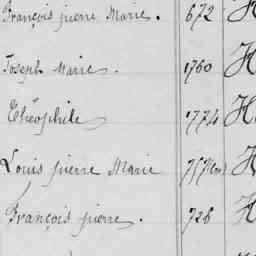 François pierre Marie. 672 H
Joseph Marie. 1760 H
Théophile 1774 H
Louis pierre Marie H
François pierre. 728 H